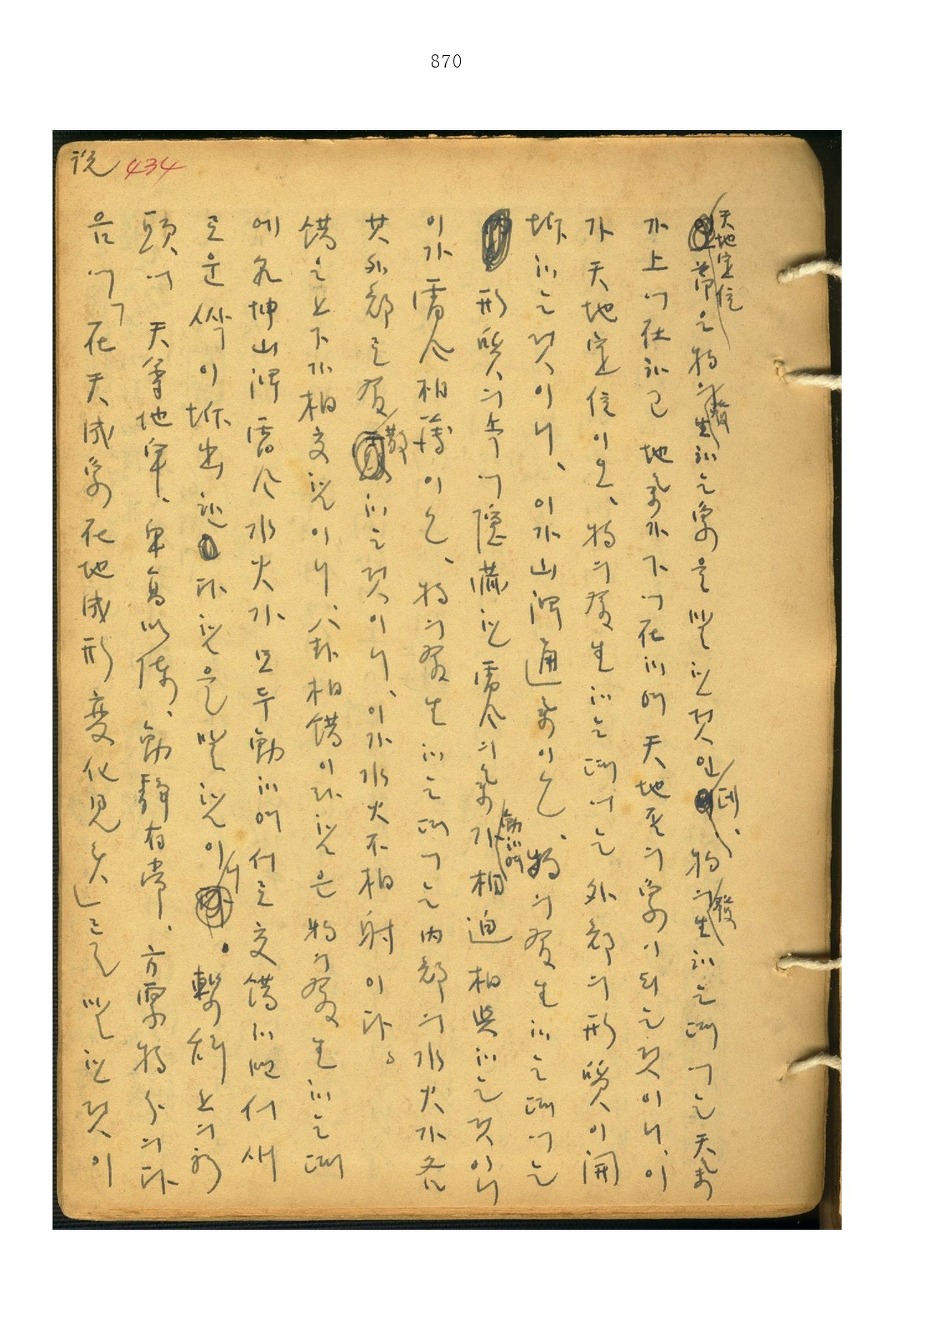 870
説 434
天地定位
章은 物의 發生하는 象을 말한 것인데, 物의 發生하는 때에는 天氣
가 上에 在하고 地氣가 下에 在하여 天地否의 象이 되는 것이니, 이
가 天地定位이오, 物의 發生하는 때에는 外部의 形質이 開
坼하는 것이니, 이가 山澤通氣이오, 物의 發生하는 때에는
形質의 속에 隱藏한 雷風의 氣가 動하여 相迫相與하는 것이니
이가 雷風相薄이오, 物의 發生하는 때에는 內部의 水火가 各
其 外部로 發散하는 것이니, 이가 水火不相射이다.
錯은 上下가 相交함이니, 八卦相錯이라 함은 物의 發生하는 때
에 乾坤山澤雷風水火가 모두 動하여 서로 交錯하면서 새
로운 싹이 坼出한다 함을 말함이니. 繫辭上의 初
頭에 天尊地卑、卑高以陳、動靜有常、方聚物分의 다
음에「在天成象在地成形變化見矣」라고 말한 것이